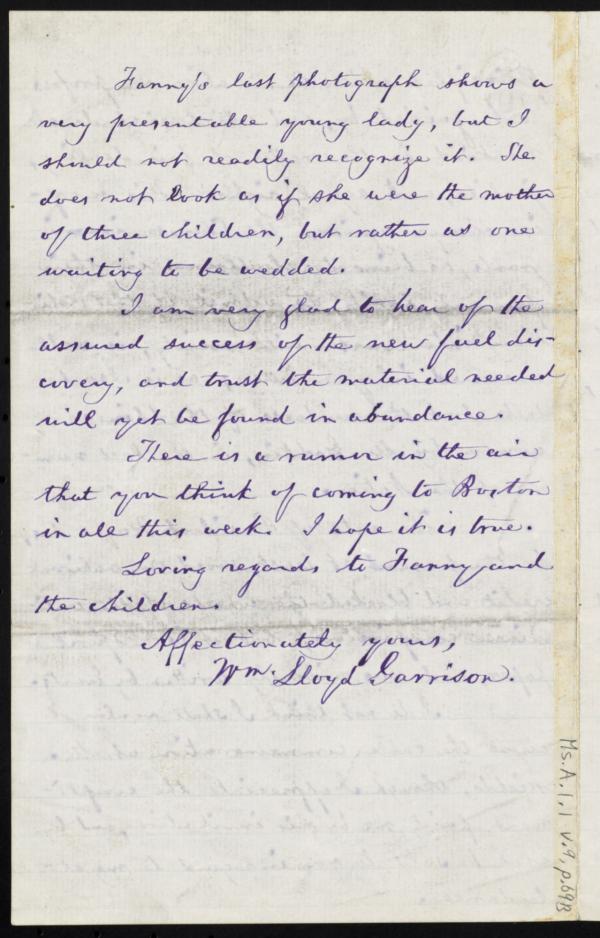 Fanny's last photograph shows a
very presentable young lady, but I
should not readily recognize it. She
does not look as if she were the mother
of three children, but rather as one
waiting to be wedded.
I am very glad to hear of the
assured success of the new fuel dis-
covery, and trust the material needed
will yet be found in abundance.
There is a rumor in the air
that you think of coming to Boston
in all this week. I hope it is true.
Loving regards to Fanny and
the children.
Affectionately yours,
Wm. Lloyd Garrison.
Ms. A. 1. 1 v. 9, p. 69B